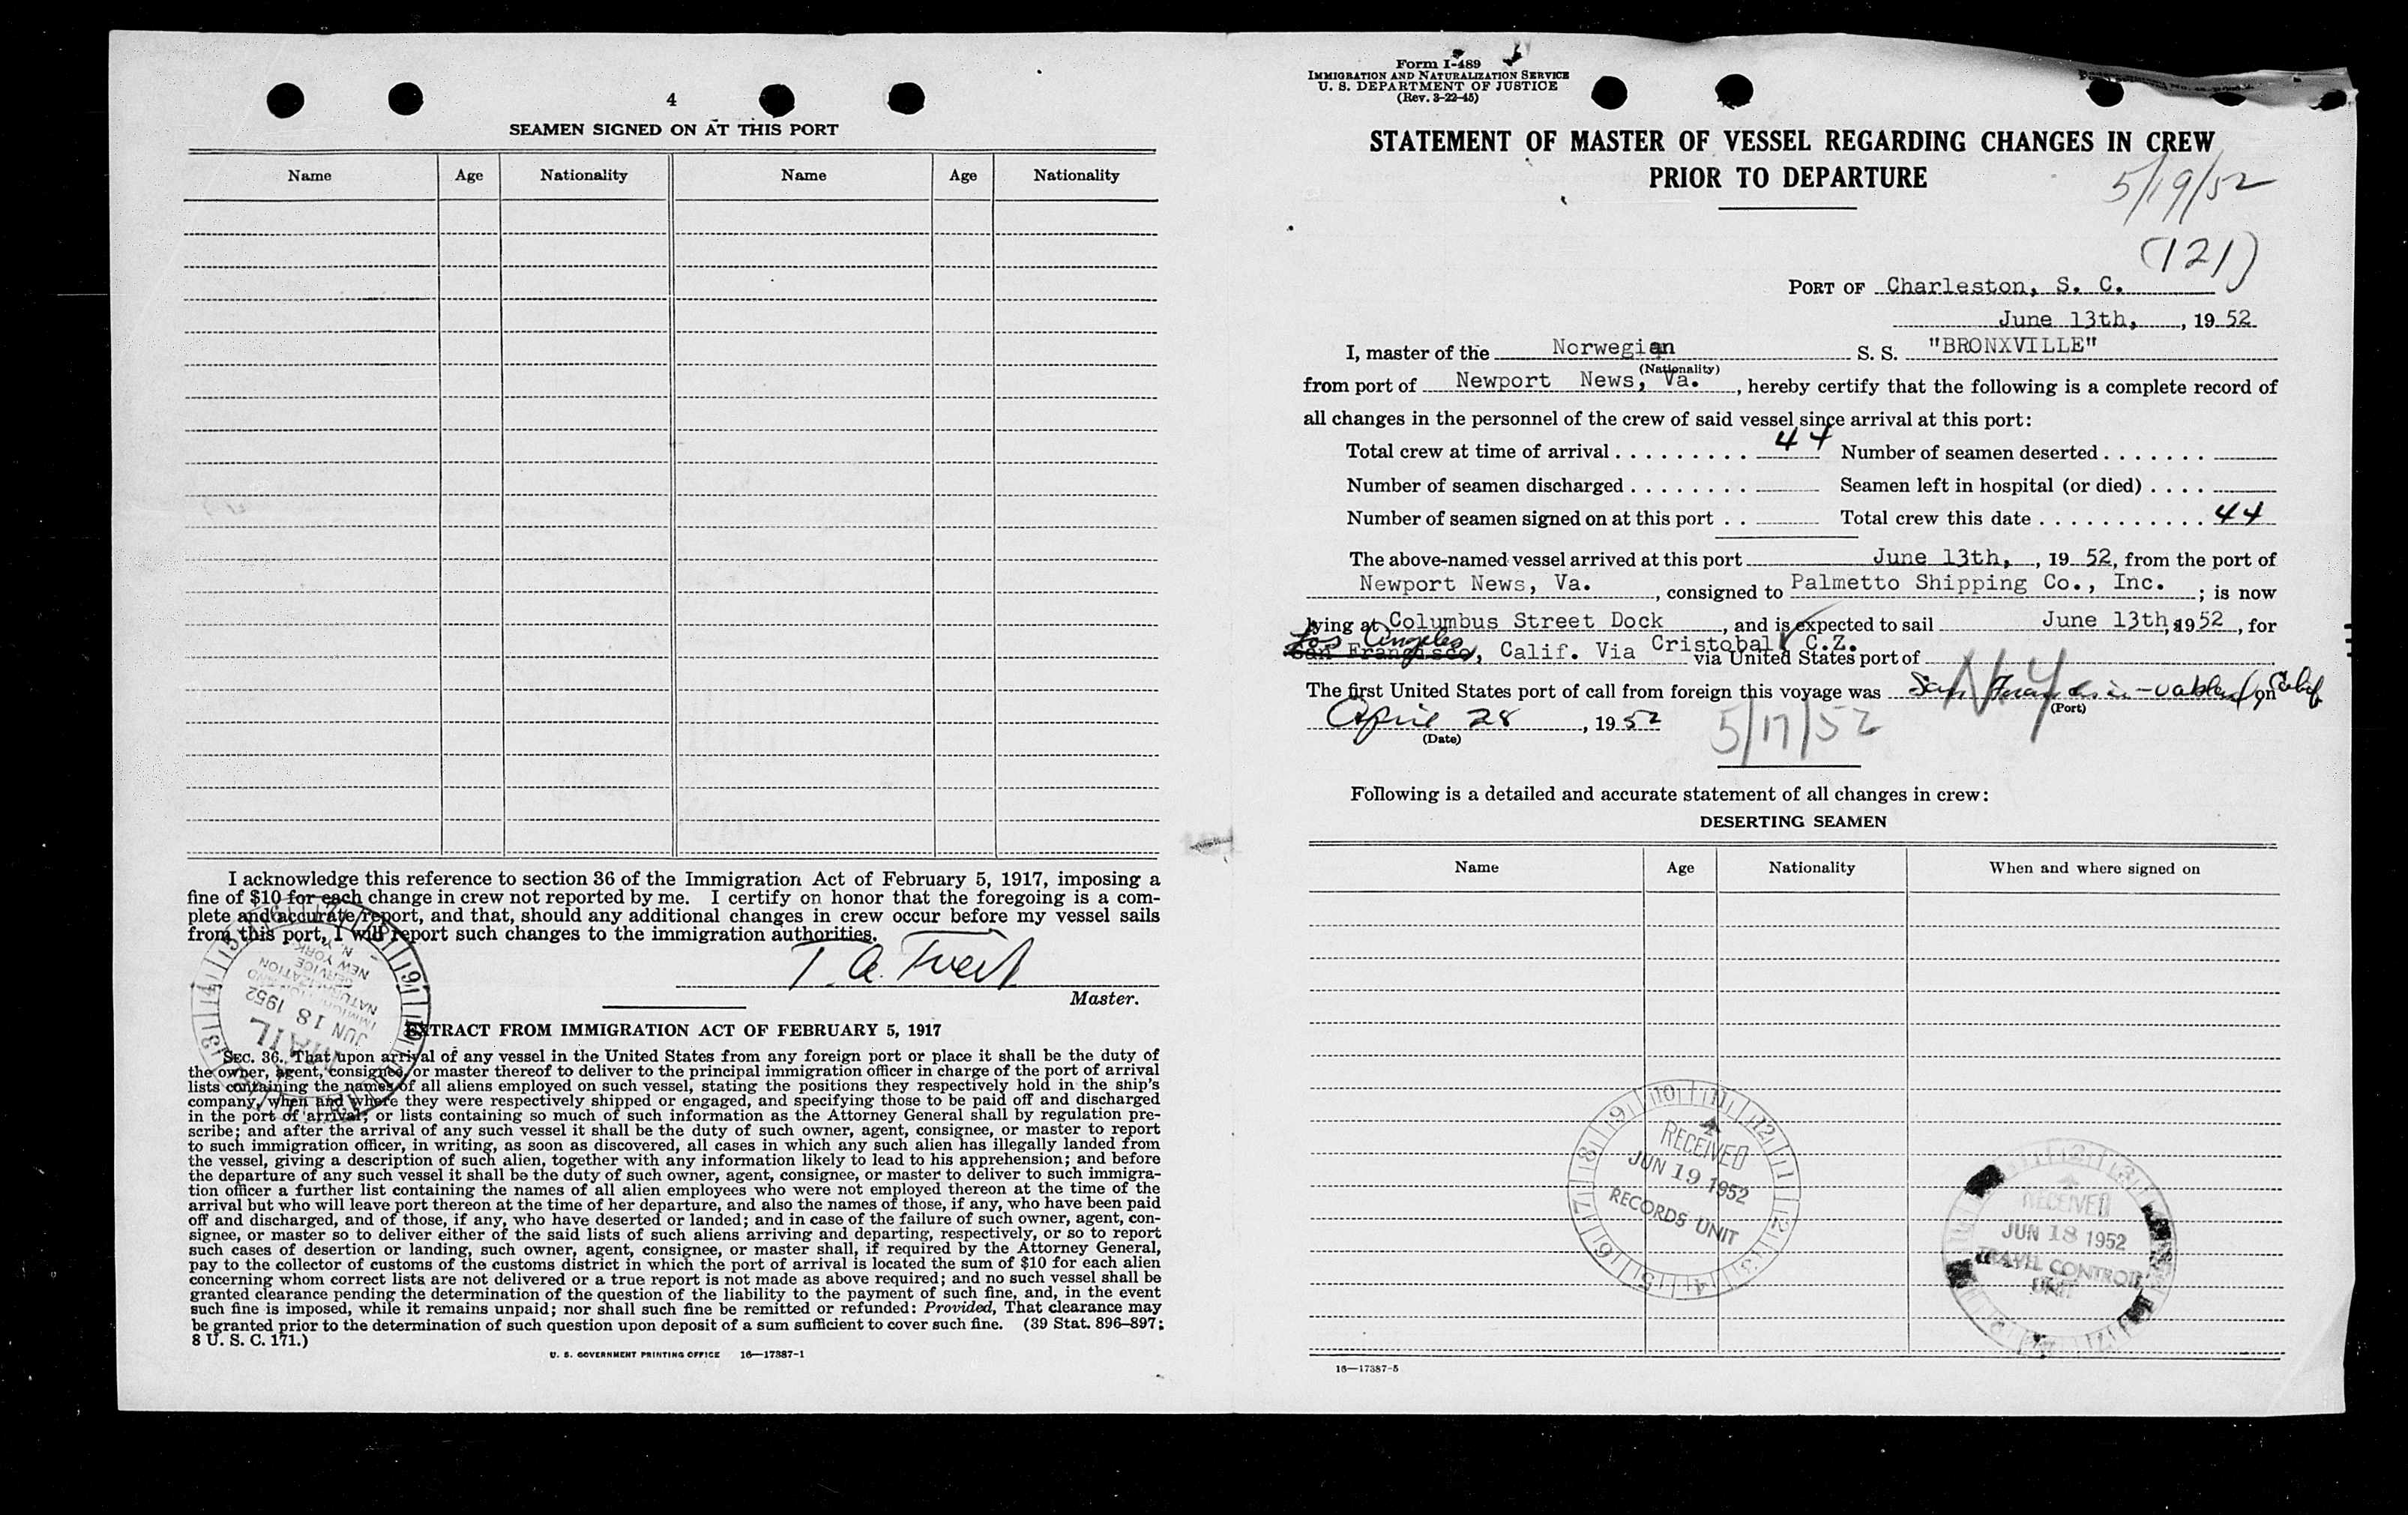 4
SEAMEN SIGNED ON AT THIS PORT
Name Age Nationality Name Age Nationality
I acknowledge this reference to section 36 of the Immigration Act of February 5, 1917, imposing a
fine of $10 for each change in crew not reported by me. I certify on honor that the foregoing is a com-
plete and accurate report, and that, should any additional changes in crew occur before my vessel sails
from this port, I will report such changes to the immigration authorities.
Master.
EXTRACT FROM IMMIGRATION ACT OF FEBRUARY 5, 1917
SEC. 36. That upon arrival of any vessel in the United States from any foreign port or place it shall be the duty of
the owner, agent, consignee, or master thereof to deliver to the principal immigration officer in charge of the port of arrival
lists containing the names of all aliens employed on such vessel, stating the positions they respectively hold in the ship's
company, when and where they were respectively shipped or engaged, and specifying those to be paid off and discharged
in the port of arrival; or lists containing so much of such information as the Attorney General shall by regulation pre-
scribe; and after the arrival of any such vessel it shall be the duty of such owner, agent, consignee, or master to report
to such immigration officer, in writing, as soon as discovered, all cases in which any such alien has illegally landed from
the vessel, giving a description of such alien, together with any information likely to lead to his apprehension; and before
the departure of any such vessel it shall be the duty of such owner, agent, consignee, or master to deliver to such immigra-
tion officer a further list containing the names of all alien employees who were not employed thereon at the time of the
arrival but who will leave port thereon at the time of her departure, and also the names of those, if any, who have been paid
off and discharged, and of those, if any, who have deserted or landed; and in case of the failure of such owner, agent, con-
signee, or master so to deliver either of the said lists of such aliens arriving and departing, respectively, or so to report
such cases of desertion or landing, such owner, agent, consignee, or master shall, if required by the Attorney General,
pay to the collector of customs of the customs district in which the port of arrival is located the sum of $10 for each alien
concerning whom correct lists are not delivered or a true report is not made as above required; and no such vessel shall be
granted clearance pending the determination of the question of the liability to the payment of such fine, and, in the event
such fine is imposed, while it remains unpaid; nor shall such fine be remitted or refunded: Provided, That clearance may
be granted prior to the determination of such question upon deposit of a sum sufficient to cover such fine. (39 Stat. 896–897;
8 U. S. C. 171.)
U. S. GOVERNMENT PRINTING OFFICE 16—17387-1
MAIL
JUN 18 1952
IMMIGRATION AND
NATURALIZATION
SERVICE
NEW YORK
N. Y.
Form I-489
IMMIGRATION AND NATURALIZATION SERVICE
U. S. DEPARTMENT OF JUSTICE
(Rev. 3-22-45)
STATEMENT OF MASTER OF VESSEL REGARDING CHANGES IN CREW
PRIOR TO DEPARTURE
5/19/52
(121)
PORT OF Charleston, S. C.
June 13th, , 19 52
I, master of the Norwegian S. S. "BRONXVILLE"
(Nationality)
from port of Newport News, Va. , hereby certify that the following is a complete record of
all changes in the personnel of the crew of said vessel since arrival at this port:
Total crew at time of arrival 44 Number of seamen deserted
Number of seamen discharged Seamen left in hospital (or died)
Number of seamen signed on at this port Total crew this date 44
The above-named vessel arrived at this port June 13th, , 19 52, from the port of
Newport News, Va. , consigned to Palmetto Shipping Co., Inc. ; is now
lying at Columbus Street Dock , and is expected to sail June 13th, 19 52 , for
Los Angeles
San Francisco, Calif. Via Cristobal C.Z. via United States port of
The first United States port of call from foreign this voyage was San Francisco - Oakland Calif on
NY
(Port)
April 28 , 19 52 5/17/52
(Date)
Following is a detailed and accurate statement of all changes in crew:
DESERTING SEAMEN
Name Age Nationality When and where signed on
RECEIVED
JUN 19 1952
RECORDS UNIT
RECEIVED
JUN 18 1952
TRAVEL CONTROL
UNIT
16—17387-5